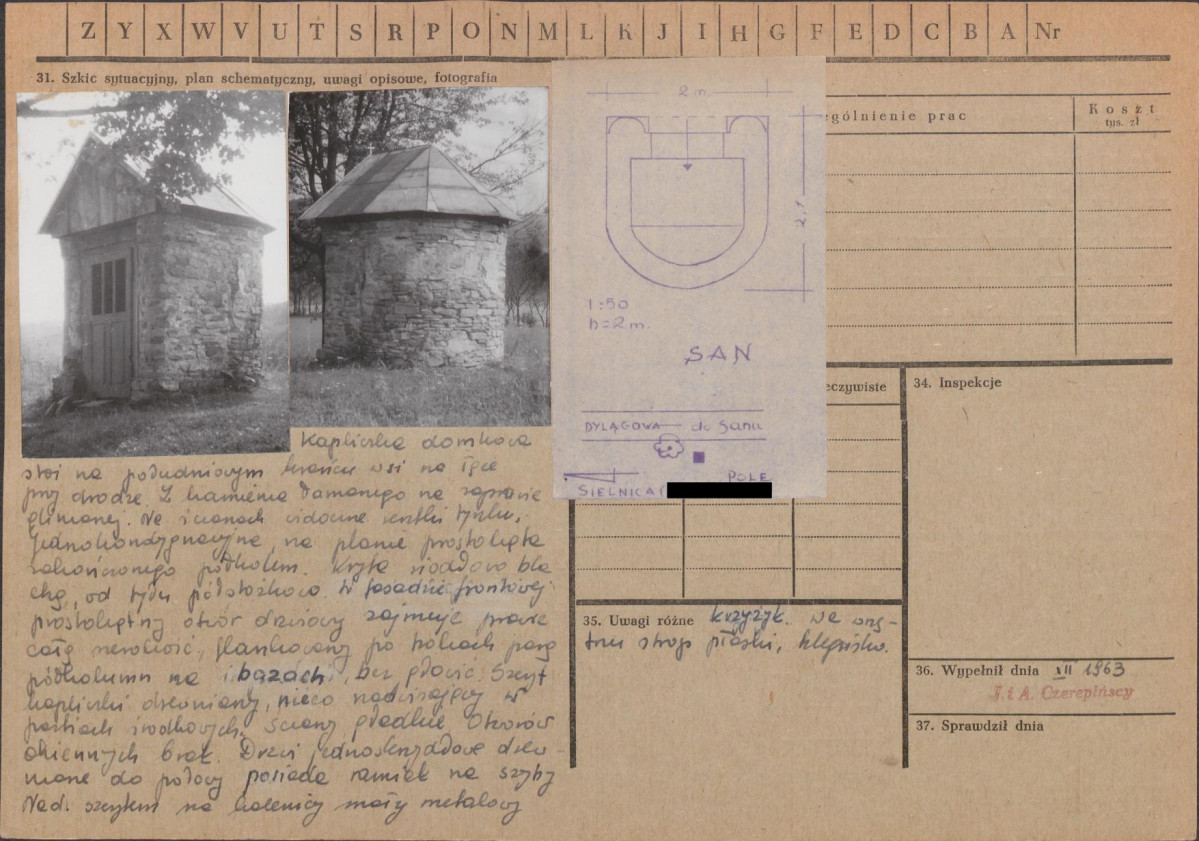 Z Y X W V U T S R P O N M L K J I H G F E D C B A Nr
31. Szkic sytuacyjny, plan schematyczny, uwagi opisowe, fotografia
Kapliczka domkowa
stoi na południowym krańcu wsi na łące
przy drodze. Z kamienia łamanego na zaprawie
glinianej. Na ścianach widoczne resztki tynku,
jednokondygnacyjna, na planie prostokąta
zakończonego półkolem. Kryta siodłowo bla
chą, od tyłu półstożkowo. W fasadzie frontowej
prostokątny otwór drzwiowy zajmuje prawie
całą szerokość, flankowany po bokach parą
półkolumn na bazach, bez głowic. Szczyt
kapliczki drewniany, nieco nadwisający w
partiach środkowych. Ściany gładkie. Otworów
okiennych brak. Drzwi jednoskrzydłowe drew-
niane do połowy posiada ramiak na szyby
Nad szczytem na kalenicy mały metalowy
2 m.
2,1
1:50
h=2m.
SAN
DYLĄGOWA do Sanu
POLE
SIELNICA
ególnienie prac
Koszt
tys. zł
eczywiste
34. Inspekcje
35. Uwagi różne krzyżyk. We wnę-
trzu strop płaski, klepisko.
36. Wypełnił dnia XII 1963
J. i A. Czerepińscy
37. Sprawdził dnia